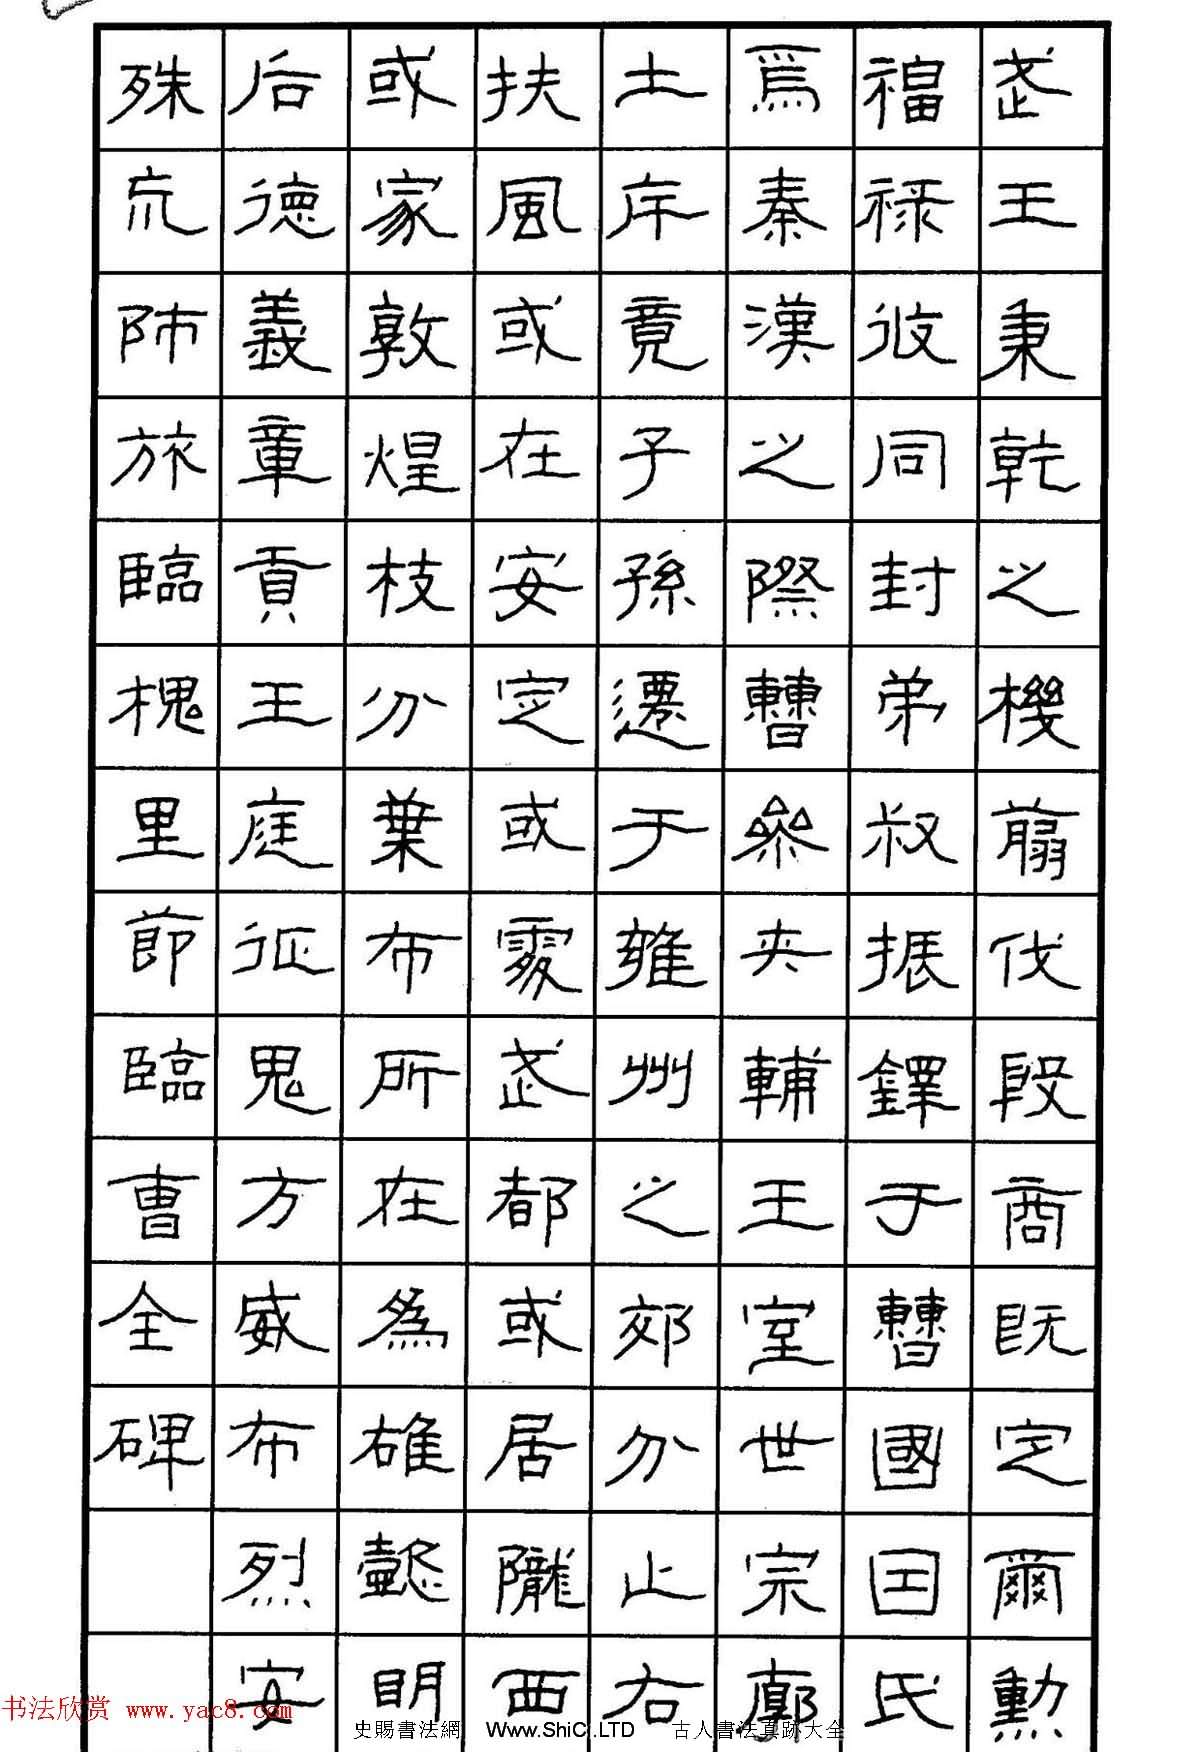 武王秉乾之機翦伐殷商既定爾勳
福祿攸同封弟叔振鐸于曹國因氏
焉秦漢之際曹參夾輔王室世宗廓
土斥竟子孫遷于雍州之郊分止右
扶風或在安定或處武都或居隴西
或家敦煌枝分葉布所在為雄懿明
后德義章貢王庭征鬼方威布烈安
殊荒師旅臨槐里節臨曹全碑
书法欣赏 www.yac8.com
史賜書法網 Www.ShiC.LTD 古人書法真跡大全